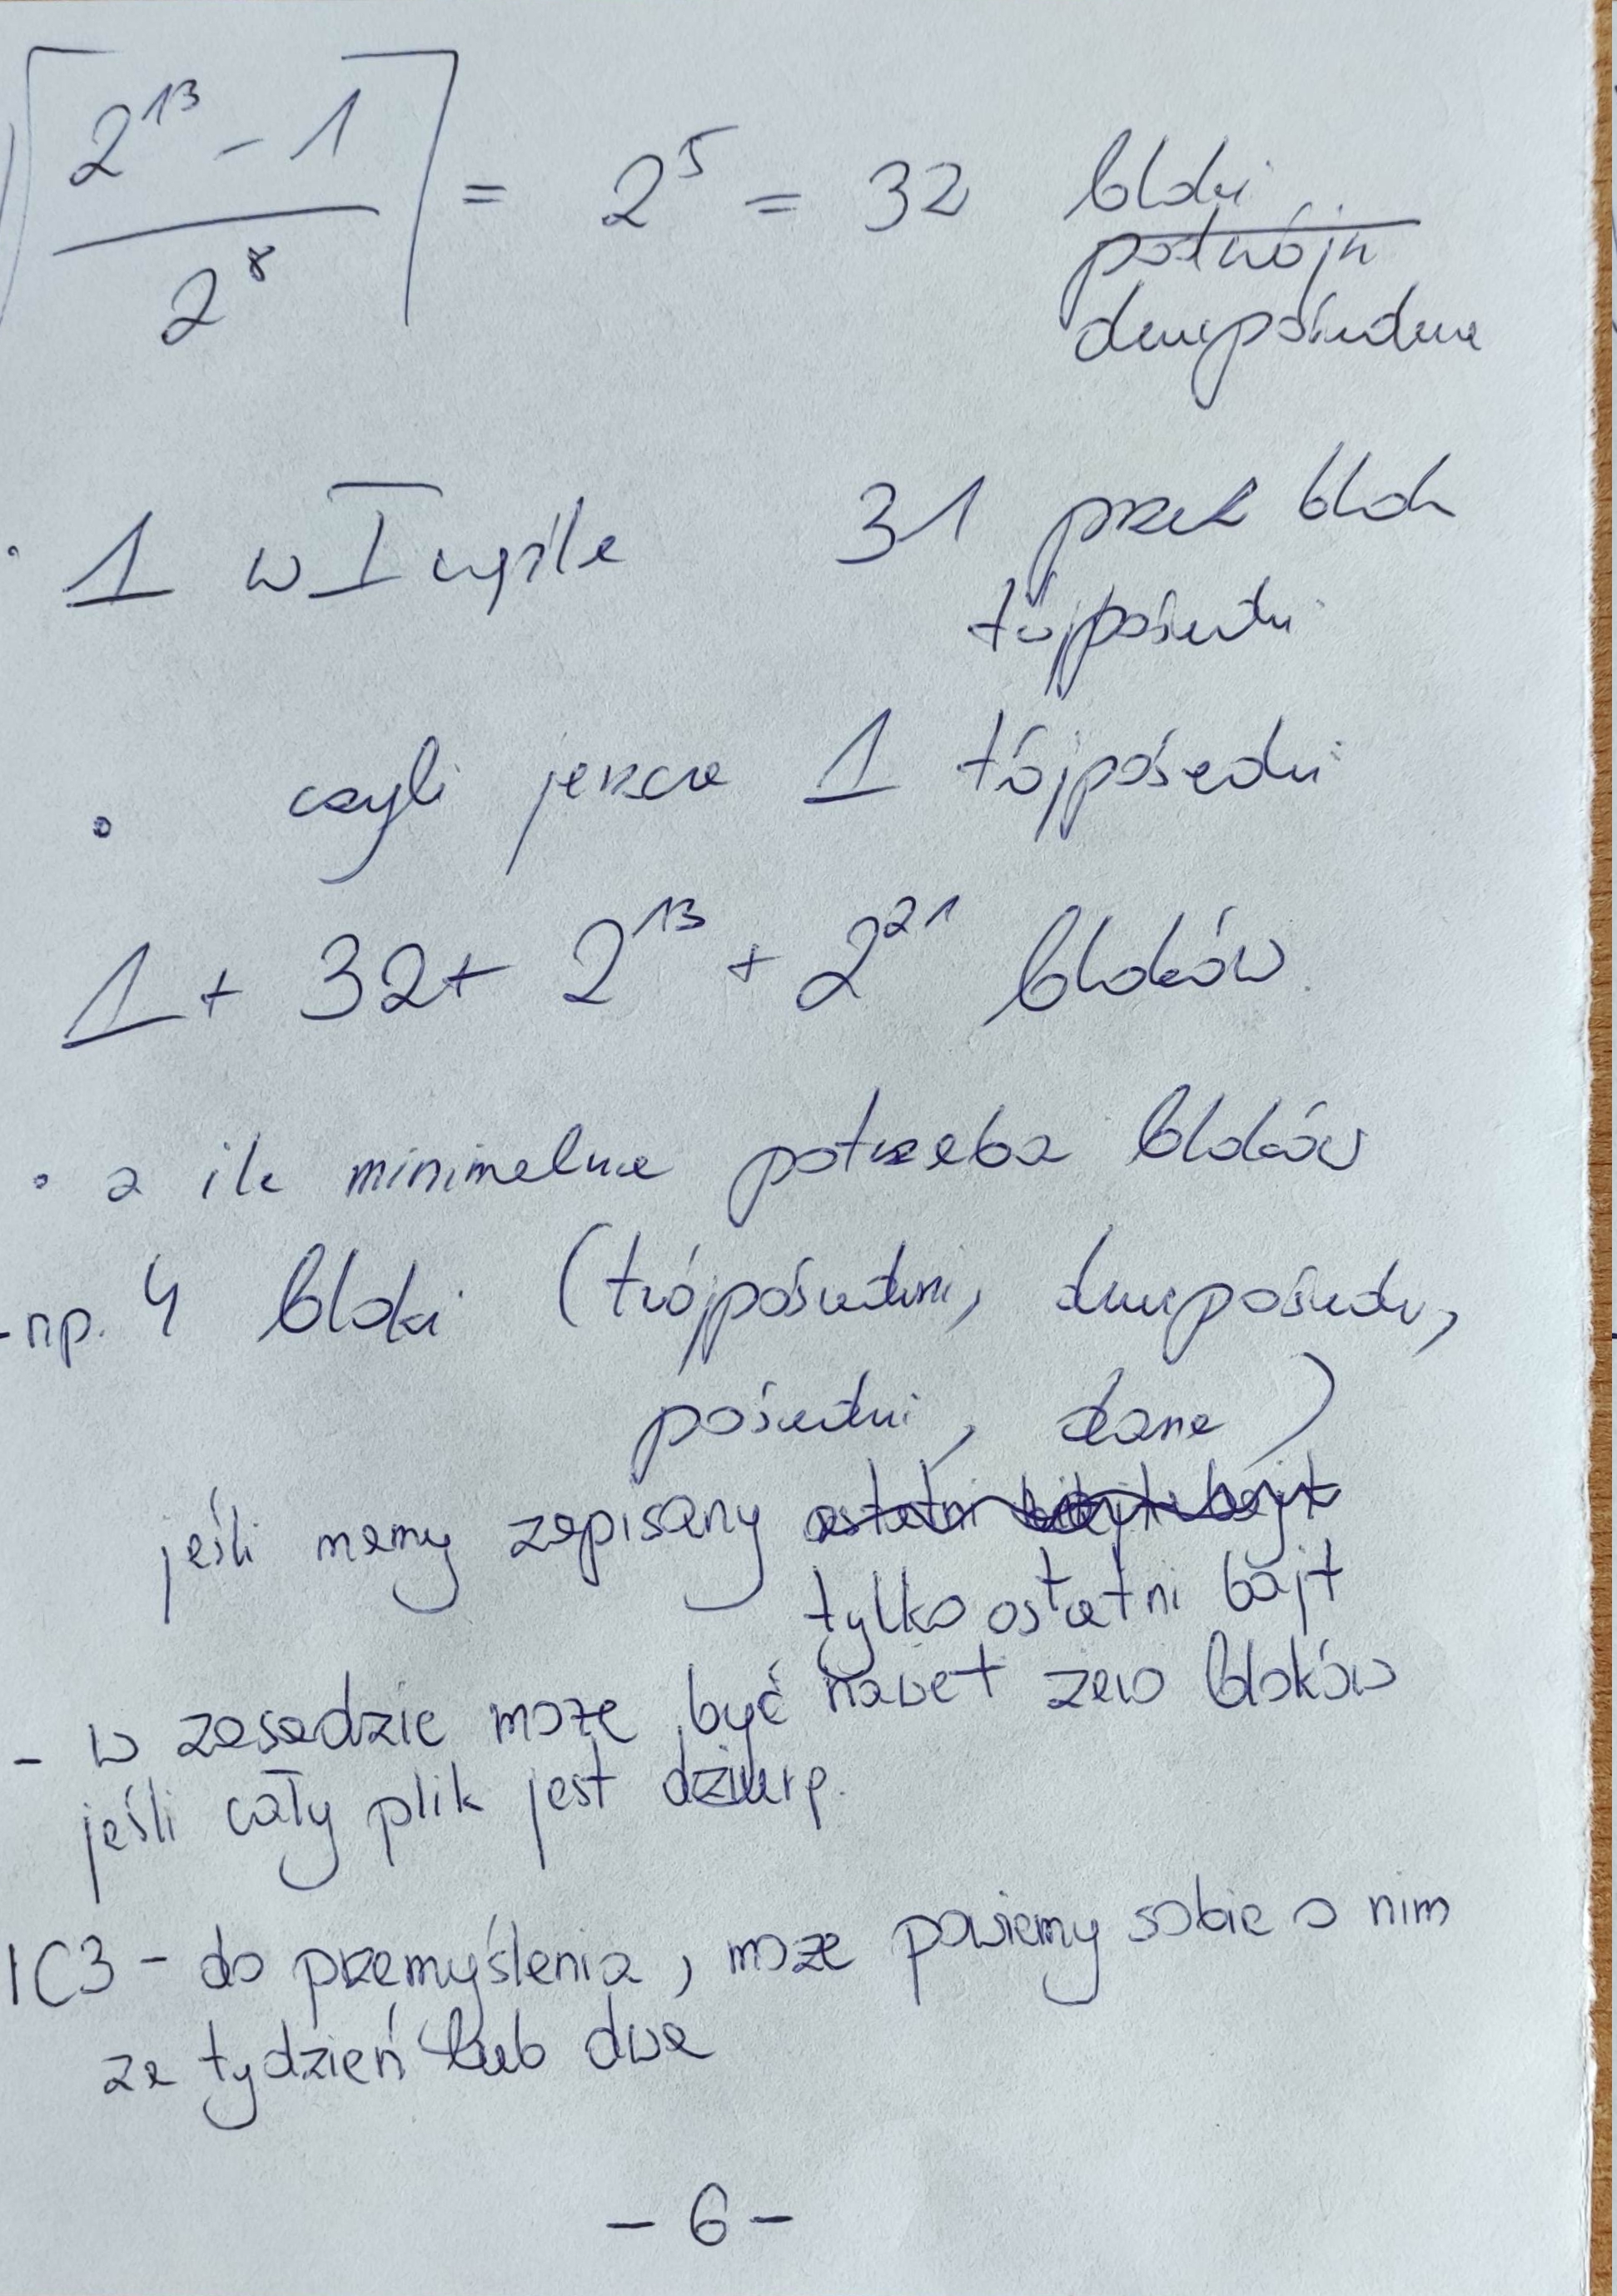 ⌈(2^13 - 1) / 2^8⌉ = 2^5 = 32 bloki
podwójn
dwupośrednie
• 1 w I węźle 31 przez blok
trójpośredni
• czyli jeszcze 1 trójpośredni
1 + 32 + 2^13 + 2^21 bloków.
• a ile minimalnie potrzeba bloków
- np. 4 bloki (trójpośredni, dwupośredni,
pośredni, dane)
jeśli mamy zapisany ostatni bajt
tylko ostatni bajt
- w zasadzie może być nawet zero bloków
jeśli cały plik jest dziurą.
1C3 - do przemyślenia, może powiemy sobie o nim
za tydzień lub dwa
- 6 -